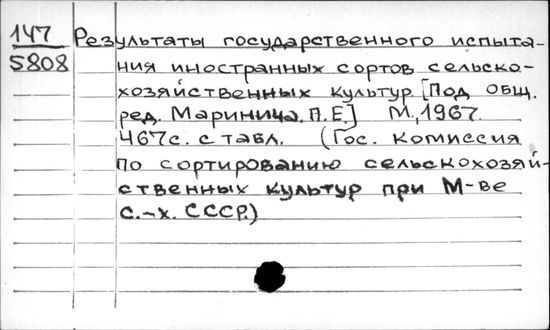 147 Результаты государственного испыта-
5808 ния иностранных сортов сельско-
хозяйственных культур [Под общ.
ред. Маринича, П.Е.] М., 1967.
467с. с табл. (Гос. комиссия
по сортированию сельскохозяй-
ственных культур при М-ве
с.-х. СССР.)